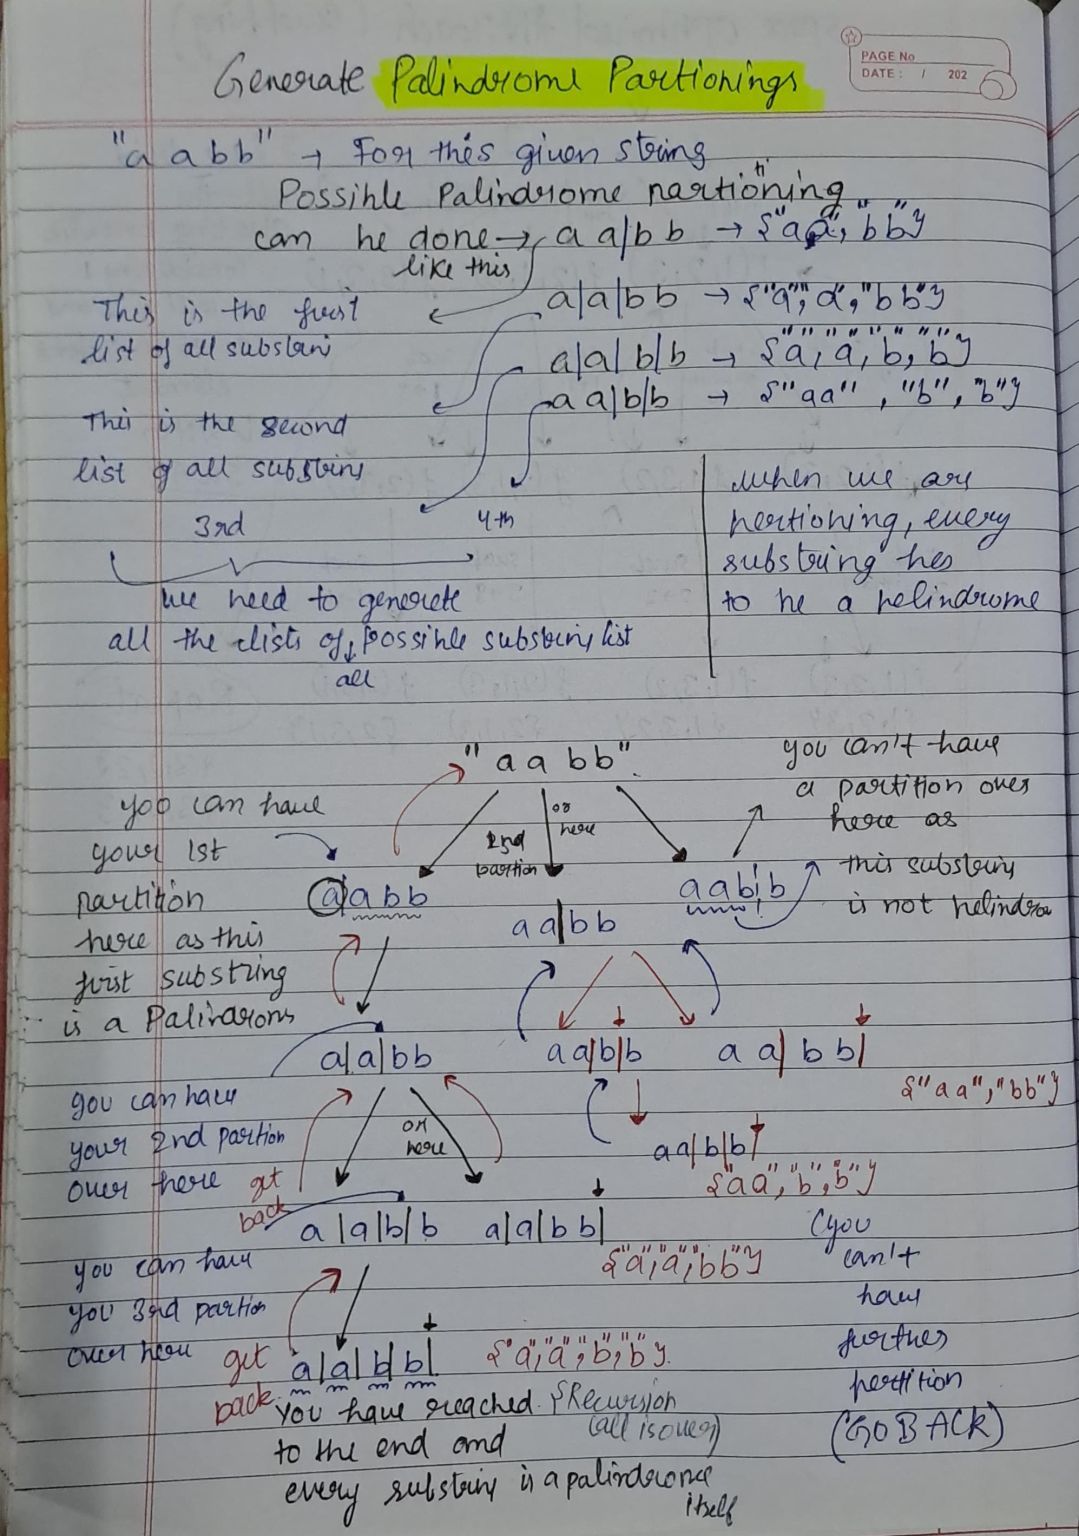 PAGE No
DATE : / 202
Generate Palindrome Partionings
"a a b b" → For this given string
Possible Palindrome partioning
ti
can be done → a a|b b → {"aa", "bb"}
like this
a|a|b b → {"a", "a", "bb"}
This is the first
list of all substani
a|a|b|b → {"a", "a", "b", "b"}
a a|b|b → {"aa", "b", "b"}
This is the second
list of all substrins
3rd
4th
we need to generate
all the lists of possible substrin list
all
when we are
pertioning, every
substring hes
to be a pelindrome
"a a b b"
you can have
your 1st
partition
here as this
first substring
is a Palindroms
2nd
partion
or
here
you can't have
a partition over
here as
this substrin
is not pelindro
a|a b b
a a|b b
a a b|b
a|a|b b
a a|b|b
a a| b b|
{"aa", "bb"}
you can have
your 2nd partion
over here
get
back
or
here
a a|b|b|
{"aa", "b", "b"}
a|a|b|b
a|a|b b|
{"a", "a", "bb"}
(you
can't
have
further
pertition
(GO BACK)
you can have
you 3rd partion
over here
get
back
a|a|b|b|
{"a", "a", "b", "b"}.
You have reached
to the end and
every substrin is a palindrome
itself
{Recursion
call is over}